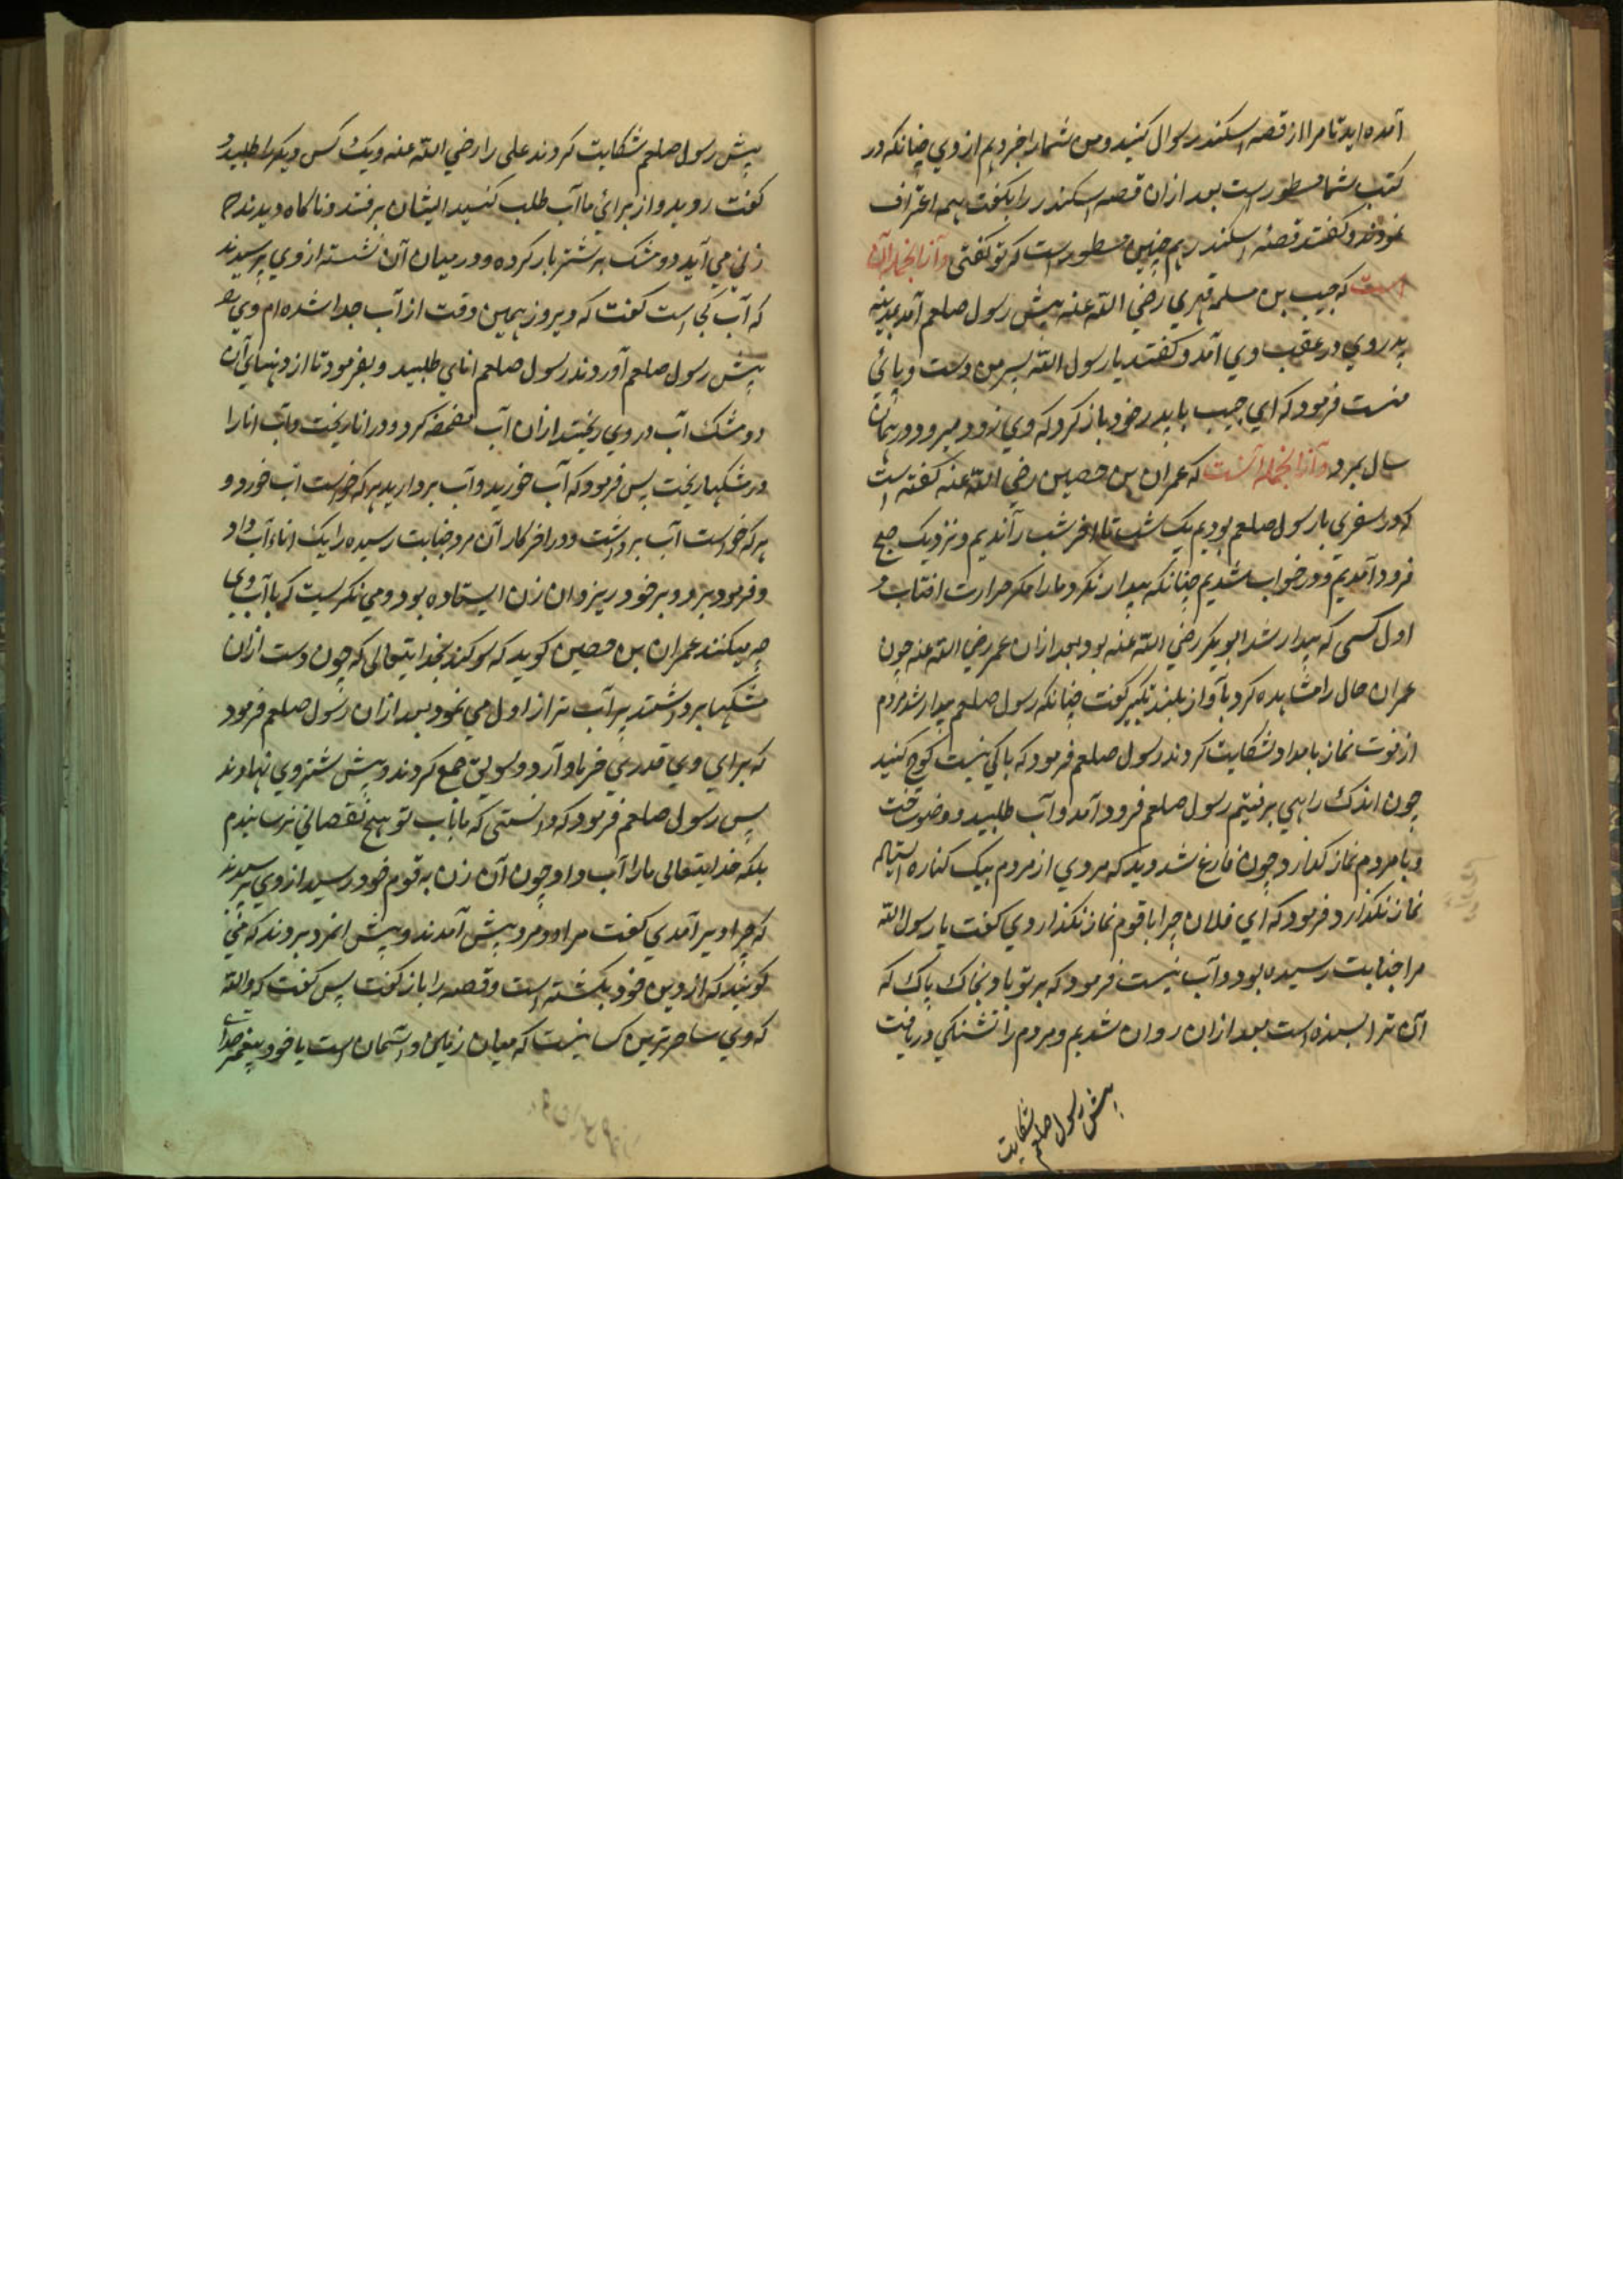 آمده اید تا مرا از قصه اسکندر سوال کنید و من شمارا خبر دهم از وي چنانکه در
کتب شما مسطور است بعد ازان قصه اسکندر را بگفت همه اعتراف
نمودند و گفتند قصه اسکندر همچنین مسطور است که تو گفتی و آنرا نجمله آن
است که حبیب بن مسلمه فهري رضي الله عنه پیش رسول صلعم آمد بمدینه
پدر وي در عقب وي آمد و گفتند یا رسول الله پسر من دست و پائي
منست فرمود که اي حبیب با پدر خود باز گرد که وي زود میرد و در همان
سال بمرد و آنرا نجمله آنست که عمران بن حصین رضي الله عنه گفته است
که در سفري با رسول صلعم بودیم یک شب تا اخر شب راندیم و نزدیک صبح
فرود آمدیم و در خواب شدیم چنانکه بیدار نکرد مارا مگر حرارت افتاب و
اول کسی که بیدار شد ابوبکر رضي الله عنه بود بعد ازان عمر رضي الله عنه چون
عمران حال را مشاهده کرد بآواز بلند تکبیر گفت چنانکه رسول صلعم بیدار شد مردم
از فوت نماز بامداد شکایت کردند رسول صلعم فرمود که باکی نیست کوچ کنید
چون اندک راهي برفتیم رسول صلعم فرود آمد و آب طلبید و وضو ساخت
و با مردم نماز گذارد چون فارغ شد دید که مردي از مردم بیک کناره استاده
نماز نگذارد فرمود که اي فلان چرا با قوم نماز نگذاردي گفت یا رسول الله
مرا جنابت رسیده بود و آب نیست فرمود که بر تو باد بخاک پاک که
آن ترا بسنده است بعد ازان روان شدیم و مردم را تشنگي دریافت
پیش رسول صلعم شکایت
پیش رسول صلعم شکایت کردند علی را رضي الله عنه و یک کس دیگر را طلبید و
گفت روید و از براي ما آب طلب کنید ایشان برفتند و ناگاه دیدند که
زني مي آید دو مشک بر شتر بار کرده و در میان آن نشسته از وي پرسیدند
که آب کجا است گفت که دیروز همین وقت از آب جدا شده ام وي را
پیش رسول صلعم آوردند رسول صلعم اناي طلبید و بفرمود تا از دهنهاي آن
دو مشک آب در وي ریختند ازان آب مضمضه کرد و در انا ریخت و آب انا را
در مشکها ریخت پس فرمود که آب خورید و آب بردارید هر که خواست آب خورد و
هر که خواست آب برداشت و در اخر کار آن مرد جنابت رسیده را یک اناء آب داد
و فرمود برو و بر خود ریز و ان زن ایستاده بود و مي نگریست که با آب وي
چه میکنند عمران بن حصین گوید که سوگند بخدایتعالی که چون دست ازان
مشکها برداشتند پر آب تر از اول مي نمود بعد ازان رسول صلعم فرمود
که براي وي قدري خرما و آرد و سویق جمع کردند و پیش شتر وي نهادند
پس رسول صلعم فرمود که دانستی که ما بآب تو هیچ نقصاني نرسانیدم
بلکه خدایتعالی ما را آب داد چون آن زن به قوم خود رسید از وي پرسیدند
که چرا دیر آمدي گفت مرا دو مرد پیش آمدند و پیش انمرد بردند که مي
گویند که از دین خود بگشته است و قصه را باز گفت پس گفت که والله
که وي ساحرترین کسانیست که میان زمین و آسمان است یا خود پیغمبر خداي